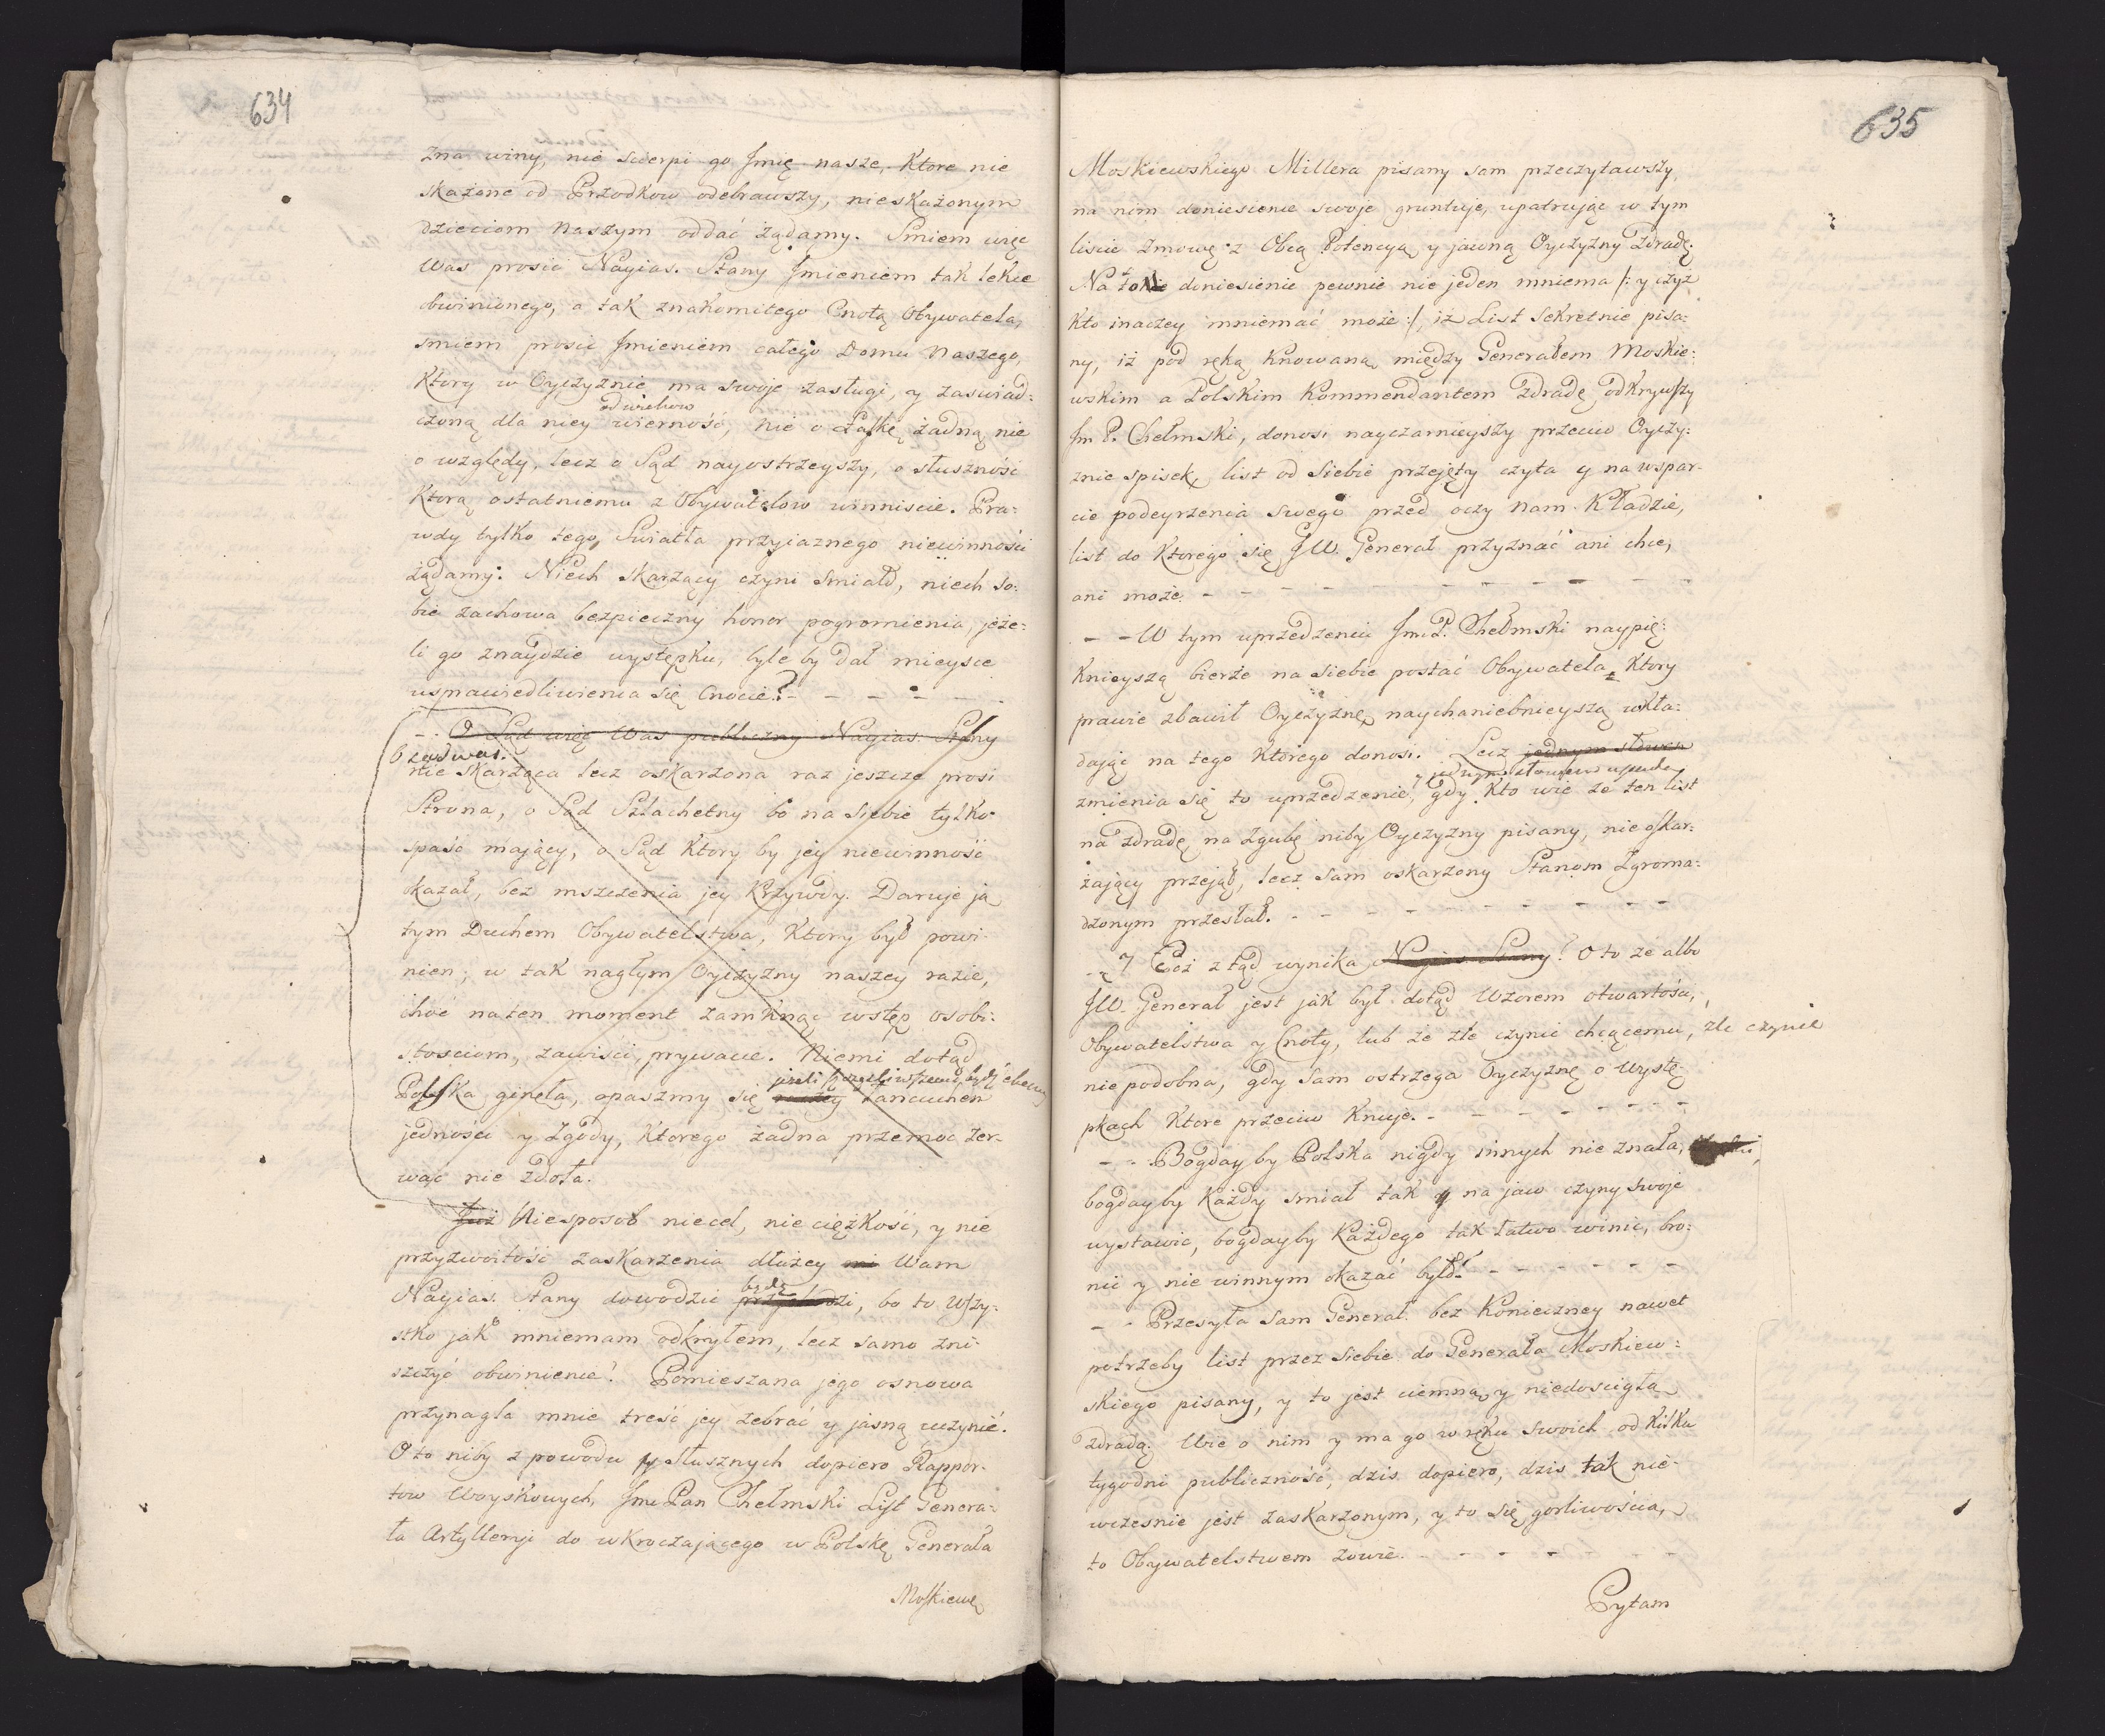 634
zna winy, nie scierpi go Jmię nasze. Ktore nie
skażone od Przodkow odebrawszy, nieskażonym
dzieciom naszym oddać żądamy. Smiem więc
Was prosić Nayias. Stany Jmieniem tak lekce
obwinionego, a tak znakomitego Cnotą Obywatela,
smiem prosić Jmieniem całego Domu Naszego,
Ktory w Oyczyznie ma swoje zasługi, y zaswiad:
od wiekow
czoną dla niey wierność, nie o Łaskę żadną nie
o względy, lecz o Sąd nayostrzeyszy, o słuszność
Ktorą ostatniemu z Obywatelow winniscie. Pra:
wdy tylko tego, Swiatła przyiaznego niewinności
żądamy: Niech skarżący czyni smiało, niech so:
bie zachowa bezpieczny honor pogromienia, jeże:
li go znaydzie występku, byle by dał mieysce
usprawiedliwienia się Cnocie? - - - - -
- - O Sąd więc Was publiczny Nayias. Stany
O sąd was.
nie skarżąca lecz oskarżona raz jeszcze prosi
Strona, o Sąd Szlachetny bo na siebie tylko
spaść mający, o Sąd Ktory by jey niewinność
okazał, bez mszczenia jey Krzywdy. Daruje ja
tym Duchem Obywatelstwa, Ktory był powi:
nien, w tak nagłym Oyczyzny naszey razie,
choć na ten moment zamknąć wstęp osobi:
stosciom, zawisci, prywacie. Niemi dotąd
jeżeli szczęsliwszemi bydź chcemy
Polska gineła, opaszmy się raczey Łancuchem
jednosci y Zgody, Ktorego żadna przemoc zer:
wać nie zdoła.
Już Niesposob niecel, nie ciężkość, y nie
przyzwoitość zaskarżenia dłużey mi Wam
będę
Nayias. Stany dowodzić przychodzi, bo to wszy:
stko jak mniemam odkryłem, lecz samo zni:
szczyć obwinienie! Pomieszana jego osnowa
przynagla mnie treść jey zebrać y jasną uczynić.
Oto niby z powodu słusznych dopiero Rappor:
tow Woyskowych, Jmc Pan Chełmski List Genera:
ła Artylleryi do wkraczającego w Polskę Generała
Moskiews
635
Moskiewskiego Millera pisany sam przeczytawszy,
na nim doniesienie swoje gruntuje, upatrując w tym
liscie zmowę z Obcą Potencyą y jawną Oyczyzny Zdradę.
Na to doniesienie pewnie nie jeden mniema /: y czyż
Kto inaczey mniemać może :/, iż List sekretnie pisa:
ny, iż pod ręką knowaną między Generałem Moskie:
wskim a Polskim Kommendantem zdradę odkrywszy
Jm P. Chełmski, donosi nayczarnieyszy przeciw Oyczy:
znie spisek, list od siebie przejęty czyta y na wspar:
cie podeyrzenia swego przed oczy nam Kładzie,
list do Ktorego się JW. Generał przyznać ani chce,
ani może. - - - - - - - - -
- - W tym uprzedzeniu Jm P. Chełmski naypię:
knieyszą bierze na siebie postać Obywatela, Ktory
prawie zbawił Oyczyznę, naychaniebnieyszą wkła:
dając na tego Ktorego donosi. Lecz jednym słowem
jednym słowem upada
zmienia się to uprzedzenie, gdy Kto wie że ten list
na zdradę na zgubę niby Oyczyzny pisany, nie oskar:
żający przejął, lecz sam oskarżony Stanom Zgroma:
dzonym przesłał. - - - - - - - - -
Coż ztąd wynika Nayias. Stany? Oto że albo
JW. Generał jest jak był dotąd Wzorem otwartości,
Obywatelstwa y Cnoty, lub że źle czynić chcącemu, źle czynić
niepodobna, gdy sam ostrzega Oyczyznę o Wystę:
pkach Ktore przeciw Knuje. - - - - - - - -
- - Bogdayby Polska nigdy innych nie znała,
bogdayby Każdy smiał tak y na jaw czyny swoje
wystawić, bogdayby Każdego tak łatwo winić, bro:
nić y nie winnym okazać było! - - - - - -
- - Przesyła sam Generał bez Konieczney nawet
potrzeby list przez siebie do Generała Moskiew:
skiego pisany, y to jest ciemną y niedoscigłą
zdradą. Wie o nim y ma go w ręku swoich od kilku
tygodni publiczność, dzis dopiero, dzis tak nie:
wczesnie jest zaskarżonym, y to się gorliwością,
to Obywatelstwem zowie. - - - - - -
Pytam